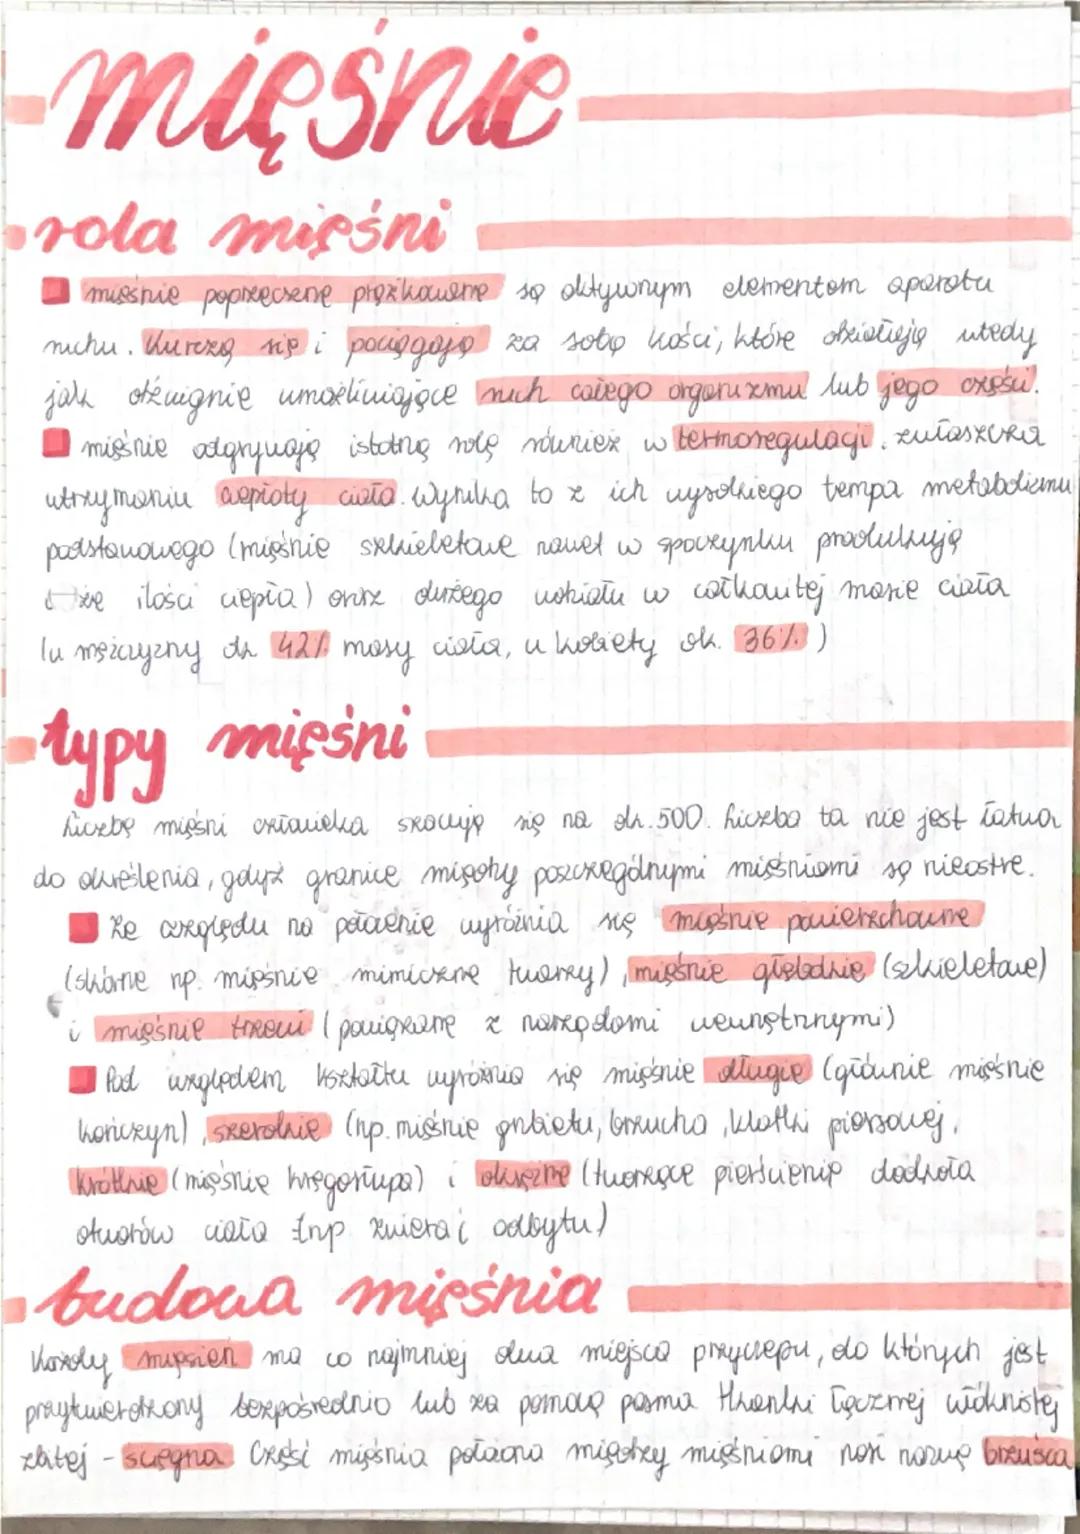 mięśnie
rola mięśni
mięśnie poprzecznie prążkowane są aktywnym elementem aparatu
ruchu. Kurczą się i pociągają za sobą kości, które działają wtedy
jak dźwignie umożliwiające ruch całego organizmu lub jego części.
mięśnie odgrywają istotną rolę również w termoregulacji, zwłaszcza
utrzymaniu ciepłoty ciała. Wynika to z ich wysokiego tempa metabolizmu
podstawowego (mięśnie szkieletowe nawet w spoczynku produkują
ilości ciepła) oraz dużego udziału w całkowitej masie ciała
(u mężczyzny ok 42% masy ciała, u kobiety ok. 36%.)
typy mięśni
Liczbę mięśni człowieka szacuje się na ok. 500. Liczba ta nie jest łatwa
do określenia, gdyż granice między poszczególnymi mięśniami są nieostre.
Ze względu na położenie wyróżnia się mięśnie powierzchowne
(skórne np. mięśnie mimiczne twarzy), mięśnie głębokie (szkieletowe)
i mięśnie trzewi (powiązane z narządami wewnętrznymi)
Pod względem kształtu wyróżnia się mięśnie długie (głównie mięśnie
kończyn), szerokie (np. mięśnie grzbietu, brzucha, klatki piersiowej,
krótkie (mięśnie kręgosłupa) i okrężne (tworzące pierścienie dookoła
otworów ciała np. zwieracz odbytu)
budowa mięśnia
Każdy mięsień ma co najmniej dwa miejsca przyczepu, do których jest
przytwierdzony bezpośrednio lub za pomocą pasma tkanki łącznej włóknistej
zbitej - ścięgna. Część mięśnia położona między mięśniami nosi nazwę brzuśca